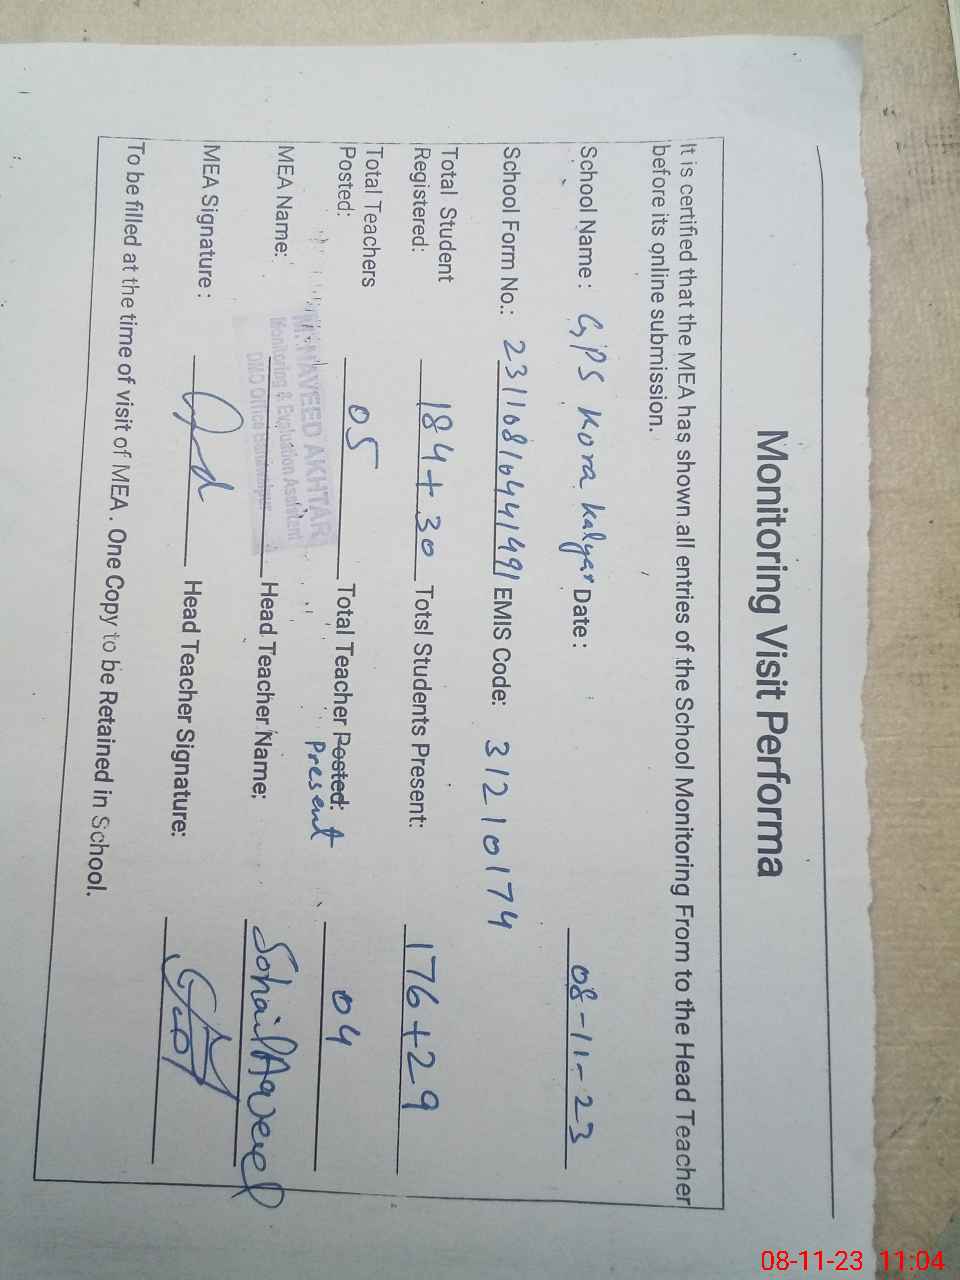 Monitoring Visit Performa
It is certified that the MEA has shown all entries of the School Monitoring From to the Head Teacher
before its online submission.
School Name : GPS Kora Kalyar Date : 08-11-23
School Form No.: 23110816441491 EMIS Code: 31210174
Total Student Registered: 184+30 Totsl Students Present: 176+29
Total Teachers Posted: 05 Total Teacher Posted: Present 04
MEA Name: M. NAVEED AKHTAR Head Teacher Name;
Monitoring & Evaluation Assistent
DMO Office Bahawalpur
MEA Signature : Head Teacher Signature:
To be filled at the time of visit of MEA . One Copy to be Retained in School.
08-11-23 11:04